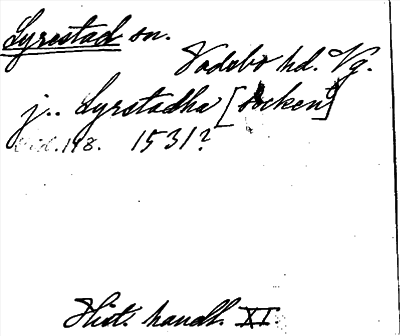 Lyrestad sn.
Vadsbo hd. Vg.
j.. Lyrstadha [socken]
sid. 198. 1531?
Hist. handl. XI.